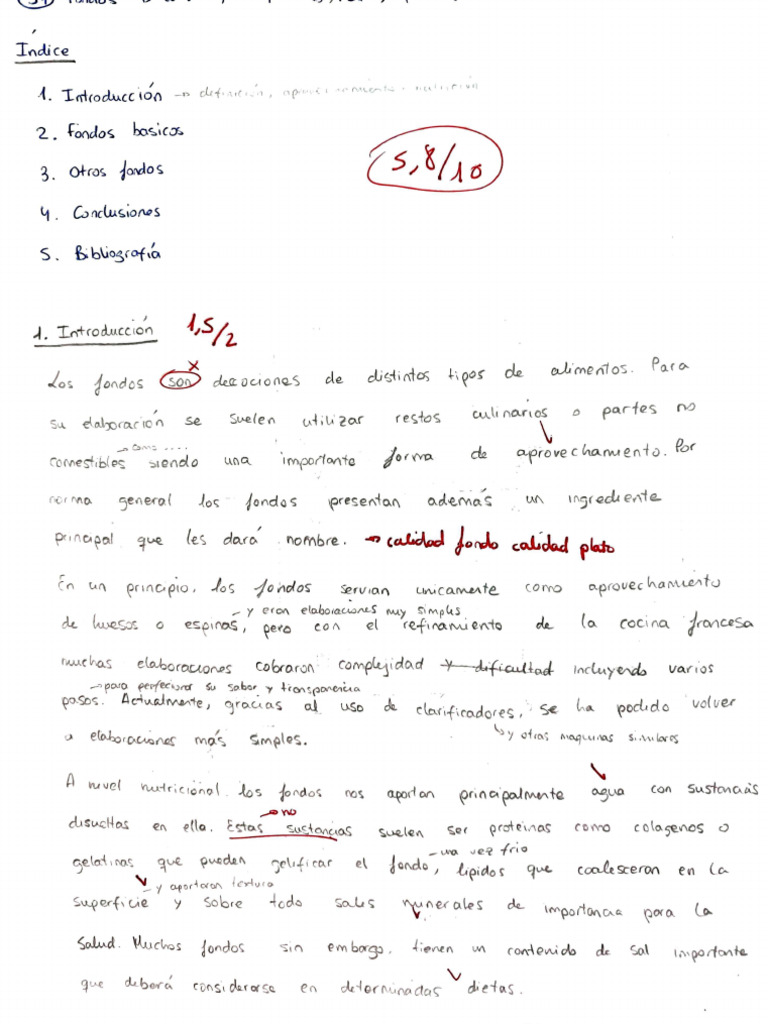 Índice
1. Introducción → definición,
2. Fondos basicos
3. Otros fondos
5,8/10
4. Conclusiones
5. Bibliografía
1. Introducción 1,5/2
x
Los fondos son decociones de distintos tipos de alimentos. Para
su elaboración se suelen utilizar restos culinarios o partes no
→ como ....
comestibles siendo una importante forma de aprovechamiento. Por
norma general los fondos presentan además un ingrediente
principal que les dará nombre. → calidad fondo calidad plato
En un principio, los fondos servian unicamente como aprovechamiento
- y eran elaboraciones muy simples
de huesos o espinas, pero con el refinamiento de la cocina francesa
muchas elaboraciones cobraron complejidad y dificultad incluyendo varios
→ para perfecionar su sabor y transparencia
pasos. Actualmente, gracias al uso de clarificadores, se ha podido volver
↳ y otras maquinas similares
a elaboraciones más simples.
A nivel nutricional los fondos nos aportan principalmente agua con sustancias
→ no
disueltas en ella. Estas sustancias suelen ser proteinas como colagenos o
- una vez frio
gelatinas que pueden gelificar el fondo, lipidos que coalesceran en la
- y aportaran textura
superficie y sobre todo sales minerales de importancia para la
salud. Muchos fondos sin embargo, tienen un contenido de sal importante
que deberá considerarse en determinadas dietas.